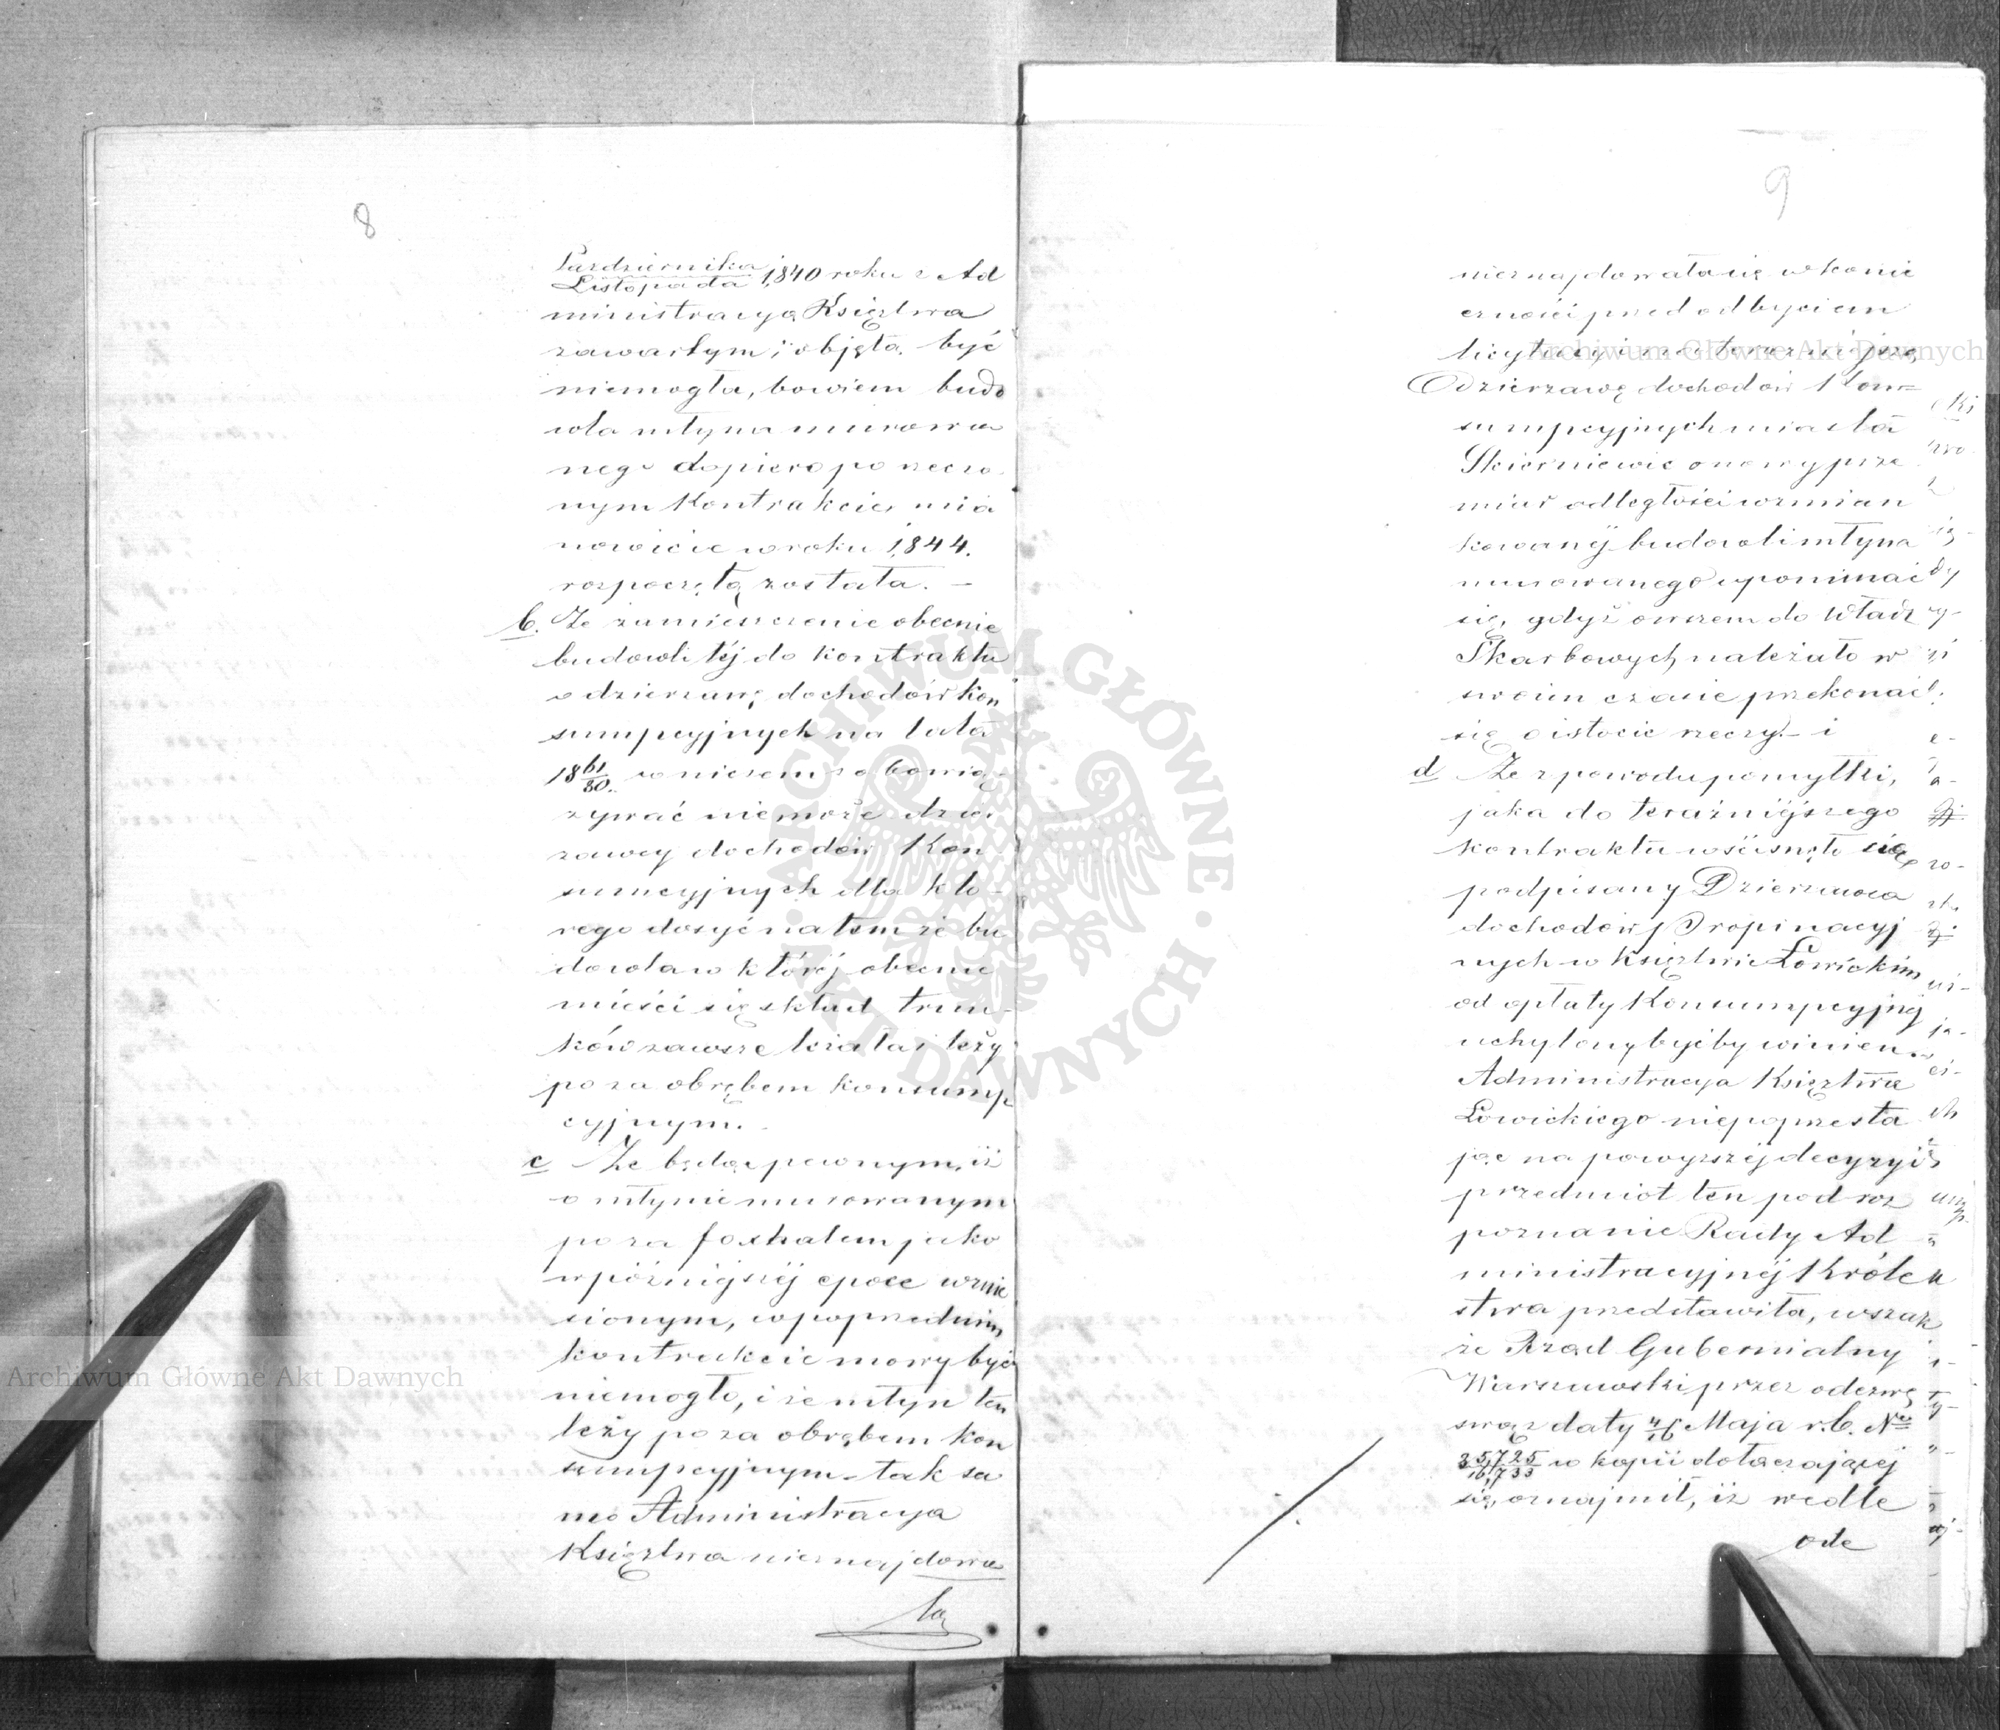 8
Października
Listopada 1840 roku z Ad
ministracya Księztwa
zawartym, objęta być
niemogła, bowiem budo
wla młyna murowa
nego dopiero po rzeczo
nym Kontrakcie, mia
nowicie w roku 1844.
rozpoczętą została. –
b. Że zamieszczenie obecnie
budowli téj do kontraktu
o dzierżawę dochodów kon
sumpcyjnych na lata
18 61/80 wniczem obowią
zywać niemoże dzier
żawcy dochodów Kon
sumcyjnych dla któ
rego dosyć na tem że bu
dowla w któréj obecnie
mieści się skład trun
ków zawsze leżała i leży
po za obrębem konsump
cyjnym.
c Że będąc pewnym, iż
o młynie murowanym
po za foxhalem jako
w późniejszéj epoce wznie
sionym, w poprzednim
kontrakcie mowy być
niemogło, i że młyn ten
leży po za obrębem kon
sumpcyjnym – tak sa
mo Administracya
Księztwa nieznajdowa
ła
9
nieznajdowała się w konie
czności przed odbyciem
licytacyi na teraźniejszą
Odzierżawę dochodów Kon=
sumpcyjnych miasta
Skierniewic o nowy prze
miar odległości wzmian
kowanéj budowli młyna
murowanego upominać
się, gdyż owszem do Władz
Skarbowych należało w
swoim czasie przekonać
się o istocie rzeczy. – i
d Że z powodu pomyłki,
jaka do teraźniejszego
kontraktu wścisnęła się
podpisany Dzierżawca
dochodów Propinacyj
nych w Księztwie Łowickim
od opłaty Konsumpcyjnéj
uchylony byćby winien.
Administracya Księztwa
Łowickiego niepoprzesta
jąc na powyższéj decyzyi
przedmiot ten pod roz
poznanie Rady Ad
ministracyjnéj Króle
stwa przedstawiła, wszak
że Rząd Gubernialny
Warszawski przez odezwę
swą z daty 4/16 Maja r.b. No
35,725/16,733 w kopii dołączającéj
się, oznajmił, iż wedle
ode
Archiwum Główne Akt Dawnych
Archiwum Główne Akt Dawnych
ARCHIWUM GŁÓWNE AKT DAWNYCH